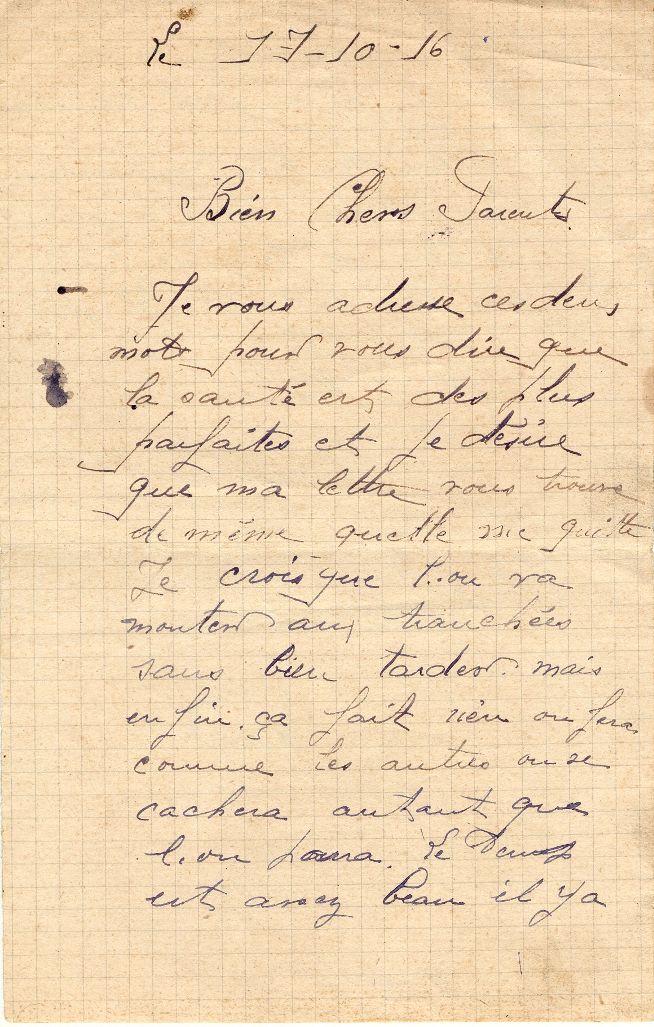 Le 17-10-16
Bien Chers Parents
Je vous adresse ces deux
mots pour vous dire que
la santé est des plus
parfaites et je désire
que ma lettre vous trouve
de même quelle me quitte
Je crois que l'on va
monter aux tranchées
sans bien tarder. mais
enfin. ça fait rien on fera
comme les autres on se
cachera autant que
l'on poura. Le Temps
est assez beau il y a